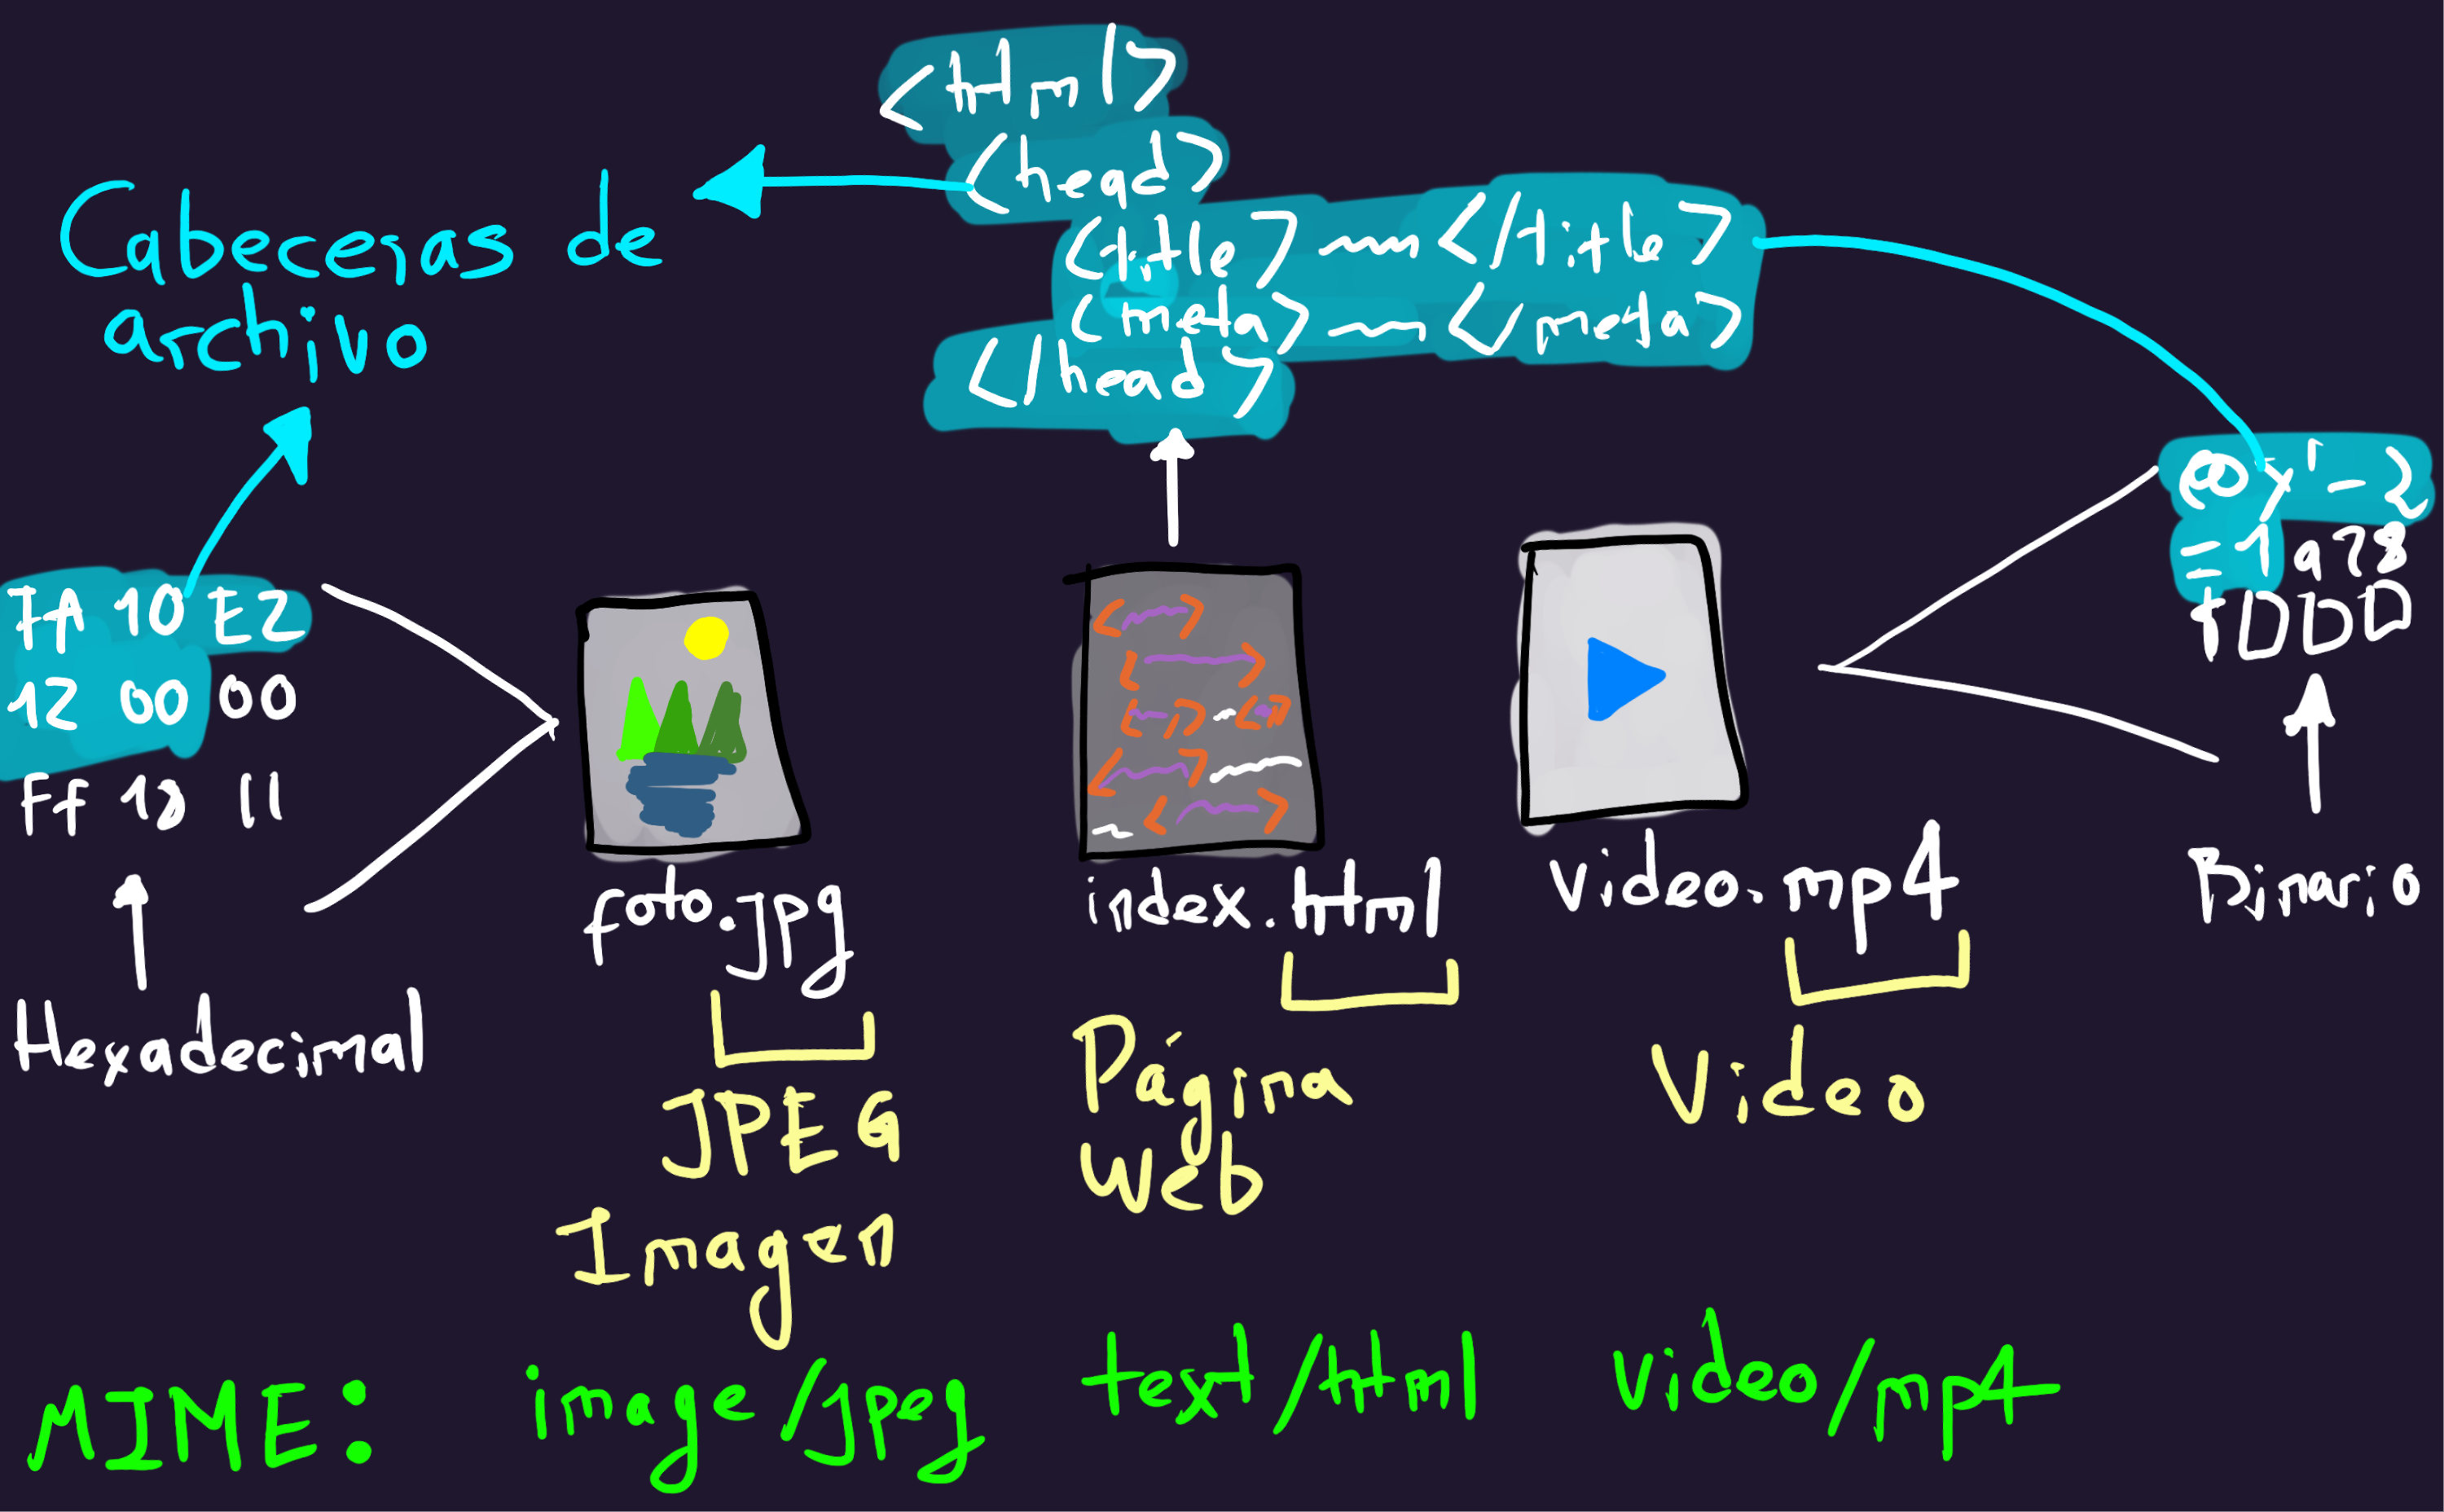 <html>
<head>
<title> </title>
<meta> </meta>
</head>
Cabeceras de
archivo
FA 10 E2
12 00 00
FF 18 11
Hexadecimal
foto.jpg
JPEG
Imagen
index.html
Página
Web
video.mp4
Video
Binario
MIME: image/jpeg text/html video/mp4